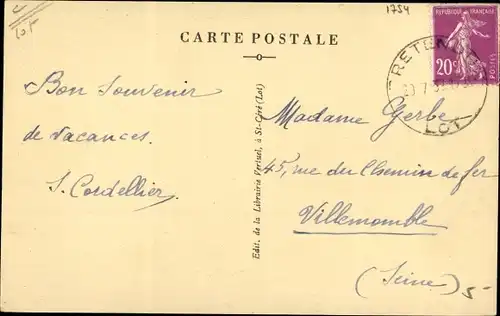 Lot
1754
CARTE POSTALE
REPUBLIQUE FRANÇAISE
20c
POSTES
LOT
Bon Souvenir
de vacances.
S. Cordellier
Edit. de la Librairie Vertuel, à St-Céré (Lot)
Madame Gerbe
45, rue du Chemin de fer
Villemomble
(Seine)
5-